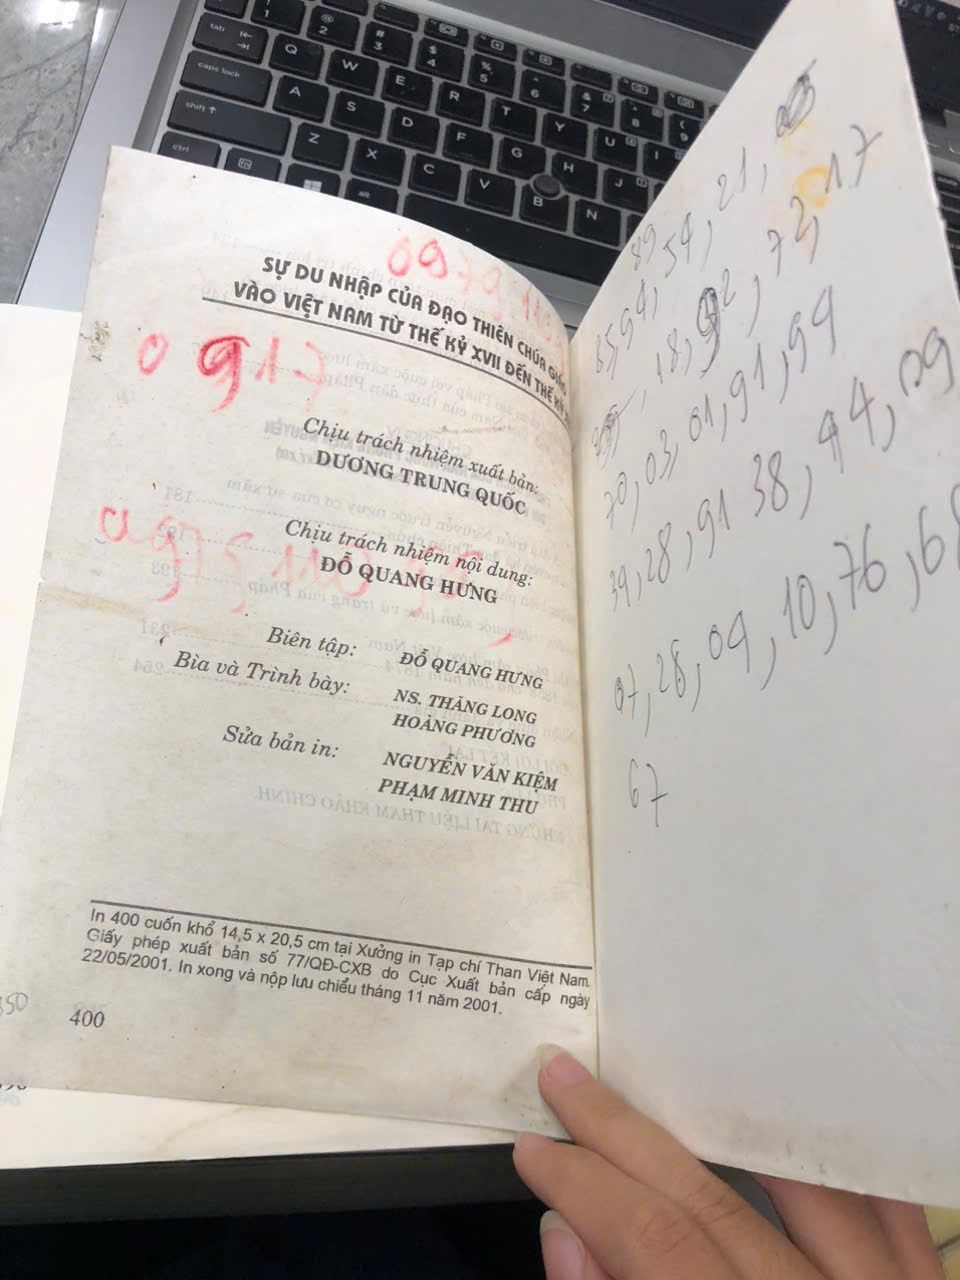 0979 11
SỰ DU NHẬP CỦA ĐẠO THIÊN CHÚA GIÁO
VÀO VIỆT NAM TỪ THẾ KỶ XVII ĐẾN THẾ KỶ
0917
Chịu trách nhiệm xuất bản:
DƯƠNG TRUNG QUỐC
Chịu trách nhiệm nội dung:
ĐỖ QUANG HƯNG
Biên tập: ĐỖ QUANG HƯNG
Bìa và Trình bày: NS. THĂNG LONG
HOÀNG PHƯƠNG
Sửa bản in: NGUYỄN VĂN KIỆM
PHẠM MINH THU
In 400 cuốn khổ 14,5 x 20,5 cm tại Xưởng in Tạp chí Than Việt Nam.
Giấy phép xuất bản số 77/QĐ-CXB do Cục Xuất bản cấp ngày
22/05/2001. In xong và nộp lưu chiểu tháng 11 năm 2001.
400
89
54, 21,
18, 72, 17
70, 03, 01, 91, 99
39, 28, 91 38, 44, 09
07, 28, 04, 10, 76, 68
67
tab
Q W E R T Y U
caps lock
A S D F G H J
shift
Z X C V B N
ctrl
fn
alt